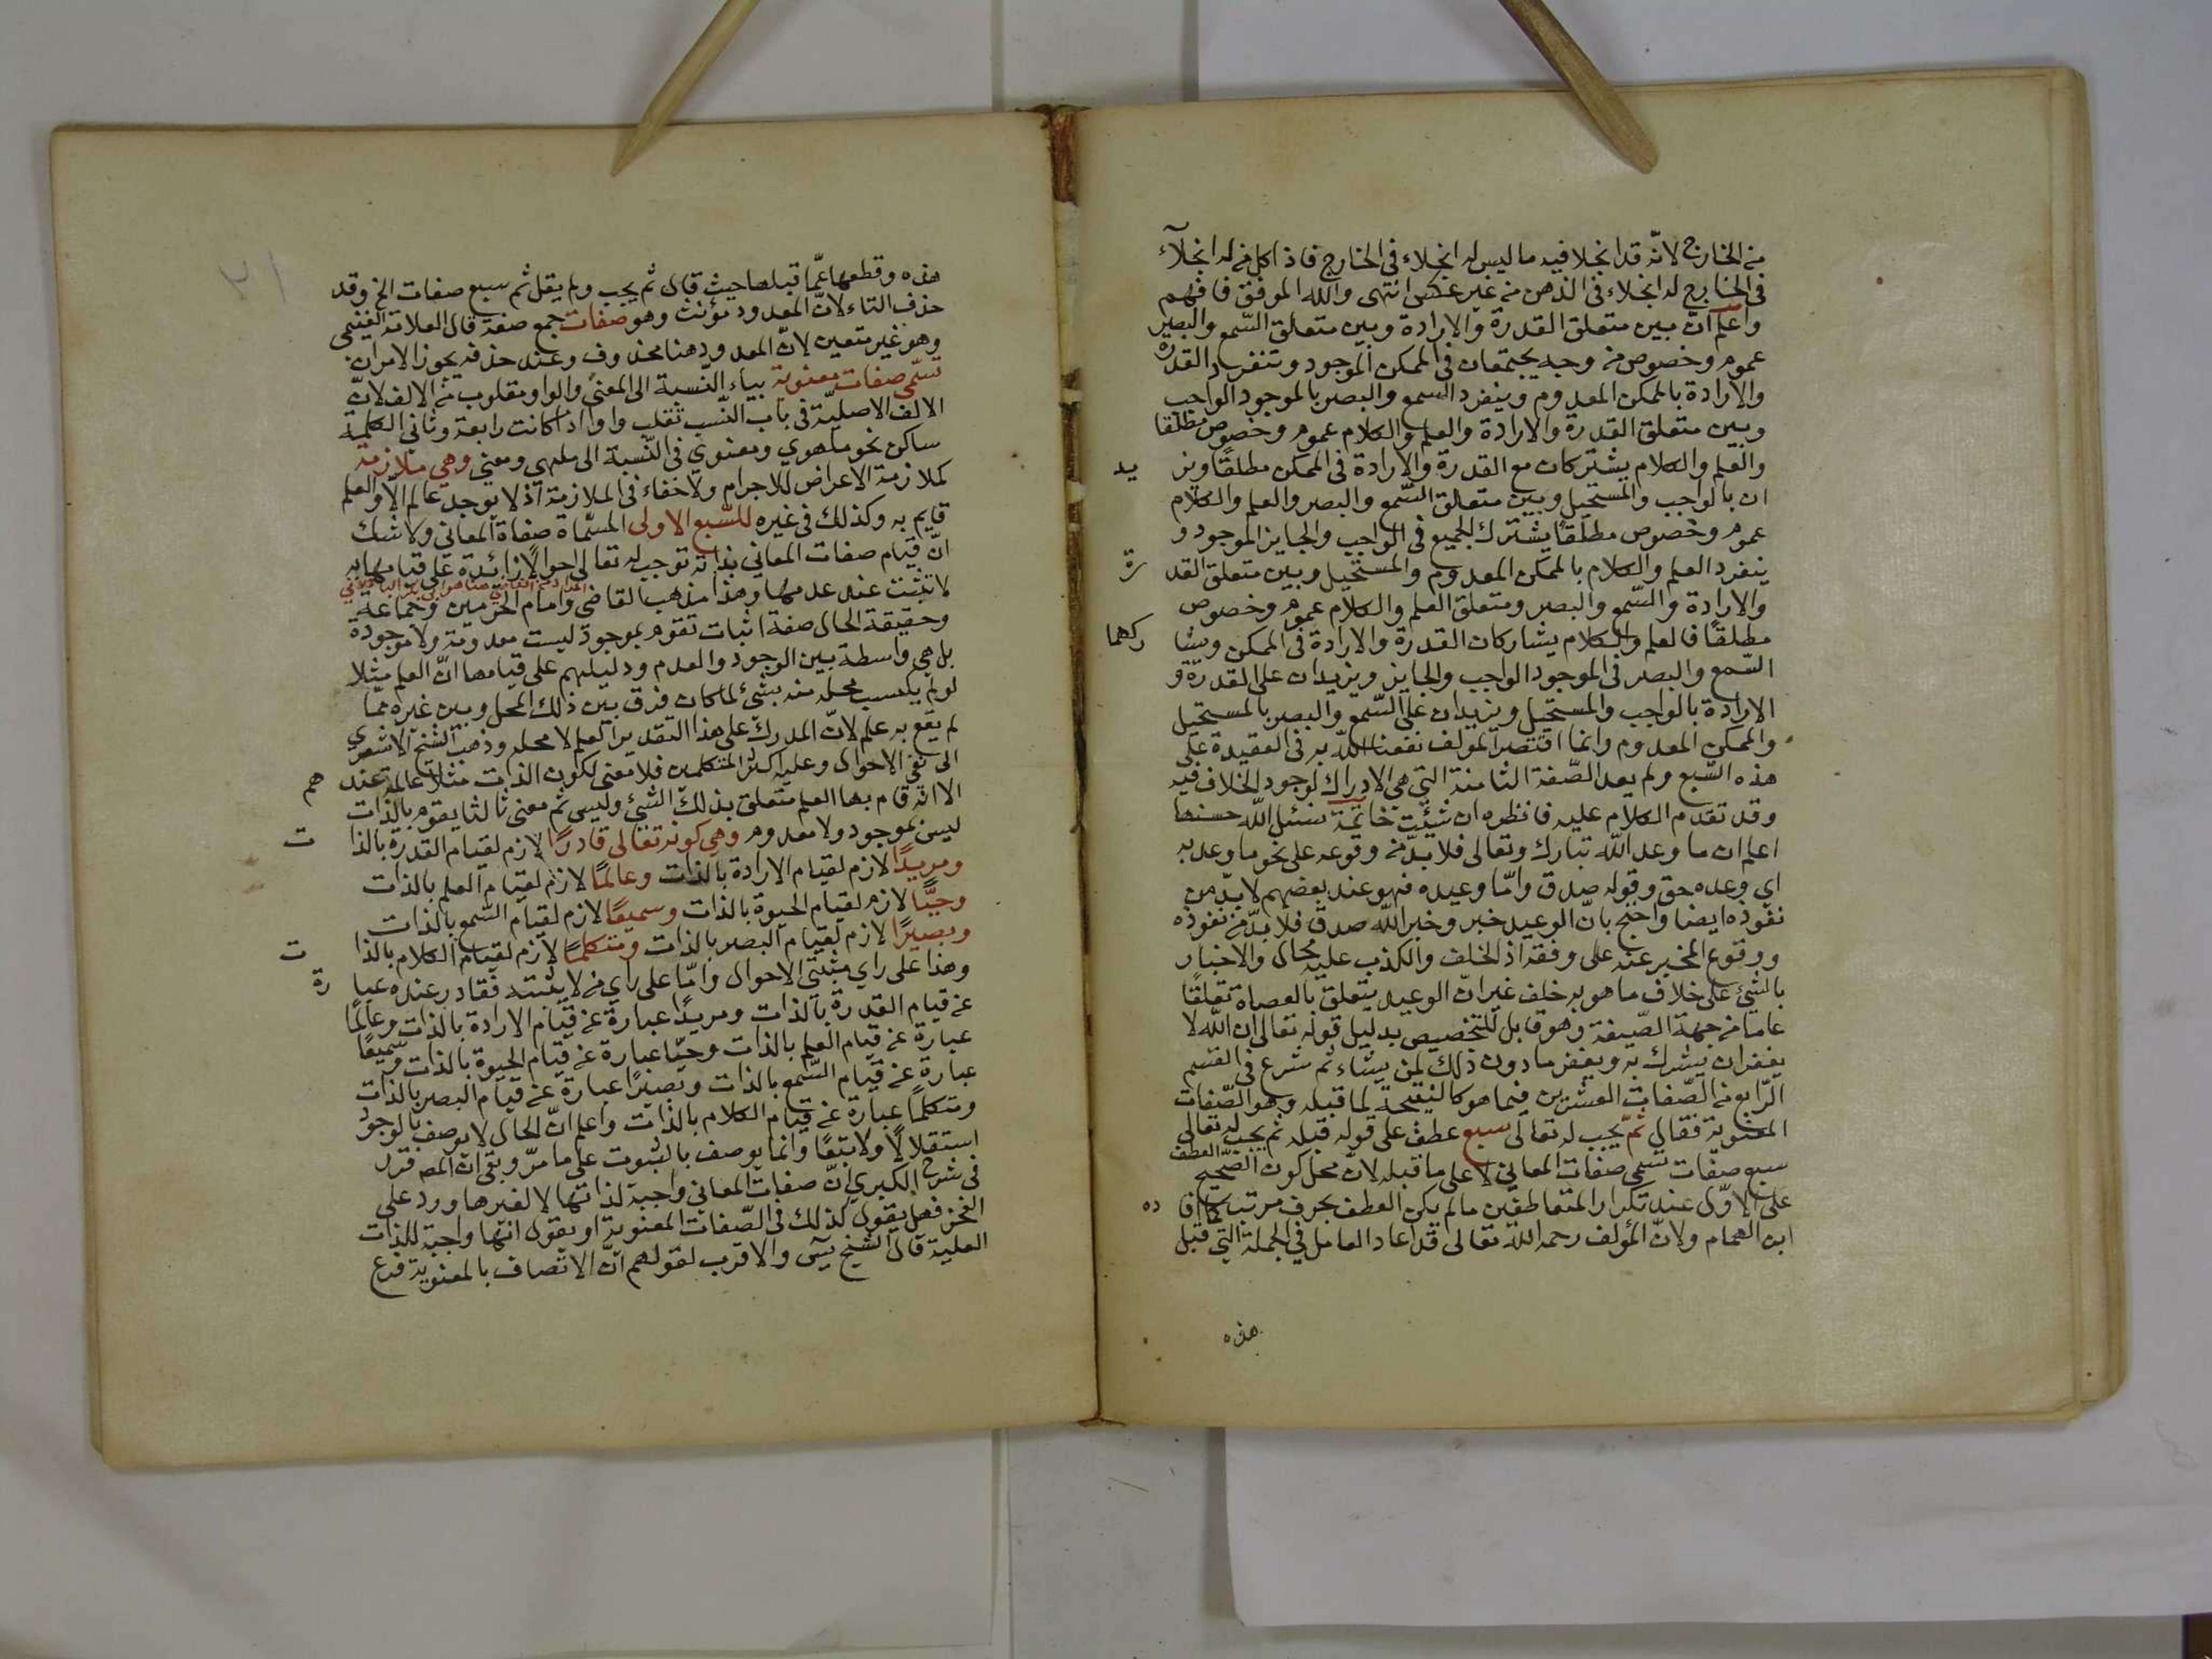 من الخارج لانّه قد انجلا فيه ما ليس له انجلاء في الخارج فاذا كل من له انجلآء
في الخارج له انجلاء في الذهن من غير عكس انتهى والله الموفق فافهم
واعلم انّ بين متعلق القدرة والارادة وبين متعلق السّمع والبصر
عموم وخصوص من وجه يجتمعان في الممكن الموجود وتنفرد القدرة
والارادة بالممكن المعدوم وينفرد السمع والبصر بالموجود الواجب
وبين متعلق القدرة والارادة والعلم والكلام عموم وخصوص مطلقا
والعلم والكلام يشتركان مع القدرة والارادة في الممكن مطلقًا ويز يد
ان بالواجب والمستحيل وبين متعلق السّمع والبصر والعلم والكلام
عموم وخصوص مطلقًا يشترك الجميع في الواجب والجايز الموجود و
ينفرد العلم والكلام بالممكن المعدوم والمستحيل وبين متعلق القد رة
والارادة والسّمع والبصر ومتعلق العلم والكلام عموم وخصوص
مطلقًا فالعلم والكلام يشاركان القدرة والارادة في الممكن ويشا ركهما
السّمع والبصر في الموجود الواجب والجايز ويزيدان على القدرة و
الارادة بالواجب والمستحيل ويزيدان على السّمع والبصر بالمستحيل
والممكن المعدوم وانما اقتصر المؤلف نفعنا الله به في العقيدة على
هذه السّبع ولم يعد الصّفة الثامنة التي هي الادراك لوجود الخلاف فيه
وقد تقدم الكلام عليه فانظره ان شئت خاتمة نسئل الله حسنها
اعلم ان ما وعد الله تبارك وتعالى فلا بدّ من وقوعه على نحو ما وعد به
اي وعده حق وقوله صدق وامّا وعيده فهو عند بعضهم لا بدّ من
نفوذه ايضا واحتج بانّ الوعيد خبر وخبر الله صدق فلا بدّ من نفوذه
ووقوع المخبر عنه على وفقه اذ الخلف والكذب عليه محال والاخبار
بالشئ على خلاف ما هو به خلف غير انّ الوعيد يتعلق بالعصاة تعلقًا
عاما من جهة الصّيغة وهو قابل للتخصيص بدليل قوله تعالى ان الله لا
يغفر ان يشرك به ويغفر ما دون ذلك لمن يشاء ثم شرع في القسم
الرّابع من الصّفات العشرين فيما هو كالنتيجة لما قبله وهو الصّفات
المعنوية فقال ثمّ يجب له تعالى سبع عطف على قوله قبله ثم يجب له تعالى
سبع صفات تسمى صفات المعاني لا على ما قبله لانّ محل كون الصّحيح العطف
على الاوّل عند تكرار المتعاطفين ما لم يكن العطف بحرف مرتب كما فا ده
ابن الهمام ولانّ المؤلف رحمه الله تعالى قد اعاد العامل في الجملة التي قبل
هذه
٢١
هذه وقطعها عمّا قبلها حيث قال ثم يجب ولم يقل ثم سبع صفات الخ وقد
حذف التاء لانّ المعدود مؤنث وهو صفات جمع صفة قال العلامة الغنيمي
وهو غير متعين لانّ المعدود هنا محذوف وعند حذفه يجوز الامران
تسمّى صفات معنوية بياء النّسبة الى المعنى والواو مقلوب من الالف لانّ
الالف الاصليّة في باب النّسب تقلب واوا اذا كانت رابعة وثاني الكلمة
ساكن نحو ملهوي ومعنوي في النّسبة الى ملهي ومعني وهي ملازمة
كملازمة الاعراض للاجرام ولا خفاء في الملازمة اذ لا يوجد عالم الا والعلم
قايم به وكذلك في غيره للسّبع الاولى المسّماة صفاة المعاني ولا شك
انّ قيام صفات المعاني بذاته توجب له تعالى احوالًا زائدة على قيامها به
لا تثبت عند عدمها وهذا مذهب القاضي وامام الحرمين وجماعة
المراد من القاضي هنا هو ابي بكر الباقلاني
وحقيقة الحال صفة اثبات تقوم بموجود ليست معدومة ولا موجودة
بل هي واسطة بين الوجود والعدم ودليلهم على قيامها انّ العلم مثلا
لو لم يكسب محله منه بشئ لما كان فرق بين ذلك المحل وبين غيره ممّا
لم يقع به علم لانّ المدرك على هذا التقدير العلم لا محله وذهب الشّيخ الاشعري
الى نفي الاحوال وعليه اكثر المتكلمين فلا معنى لكون الذات مثلا عالمة عند هم
الا انّه قام بها العلم متعلق بذلك الشئ وليس ثم معنى ثالثا يقوم بالذات
ليس بموجود ولا معدوم وهي كونه تعالى قادرًا لازم لقيام القدرة بالذا ت
ومريدًا لازم لقيام الارادة بالذات وعالمًا لازم لقيام العلم بالذات
وحيًّا لازم لقيام الحيوة بالذات وسميعًا لازم لقيام السّمع بالذات
وبصيرًا لازم لقيام البصر بالذات ومتكلمًا لازم لقيام الكلام بالذا ت
وهذا على راي مثبتي الاحوال وامّا على راي من لا يثبته فقادر عنده عبا رة
عن قيام القدرة بالذات ومريدًا عبارة عن قيام الارادة بالذات وعالمًا
عبارة عن قيام العلم بالذات وحيّا عبارة عن قيام الحيوة بالذات وسميعًا
عبارة عن قيام السّمع بالذات وبصيرًا عبارة عن قيام البصر بالذات
ومتكلمًا عبارة عن قيام الكلام بالذات واعلم انّ الحال لا يوصف بالوجود
استقلالًا ولا تبعًا وانما يوصف بالثبوت على ما مرّ وبقي ان المص قرر
في شرح الكبري انّ صفات المعاني واجبة لذاتها لا لغيرها ورد على
الفخر فهل يقول كذلك في الصّفات المعنوية او يقول انّها واجبة للذات
العلية قال الشّيخ يسٓ والاقرب لقولهم انّ الاتصاف بالمعنوية فرع